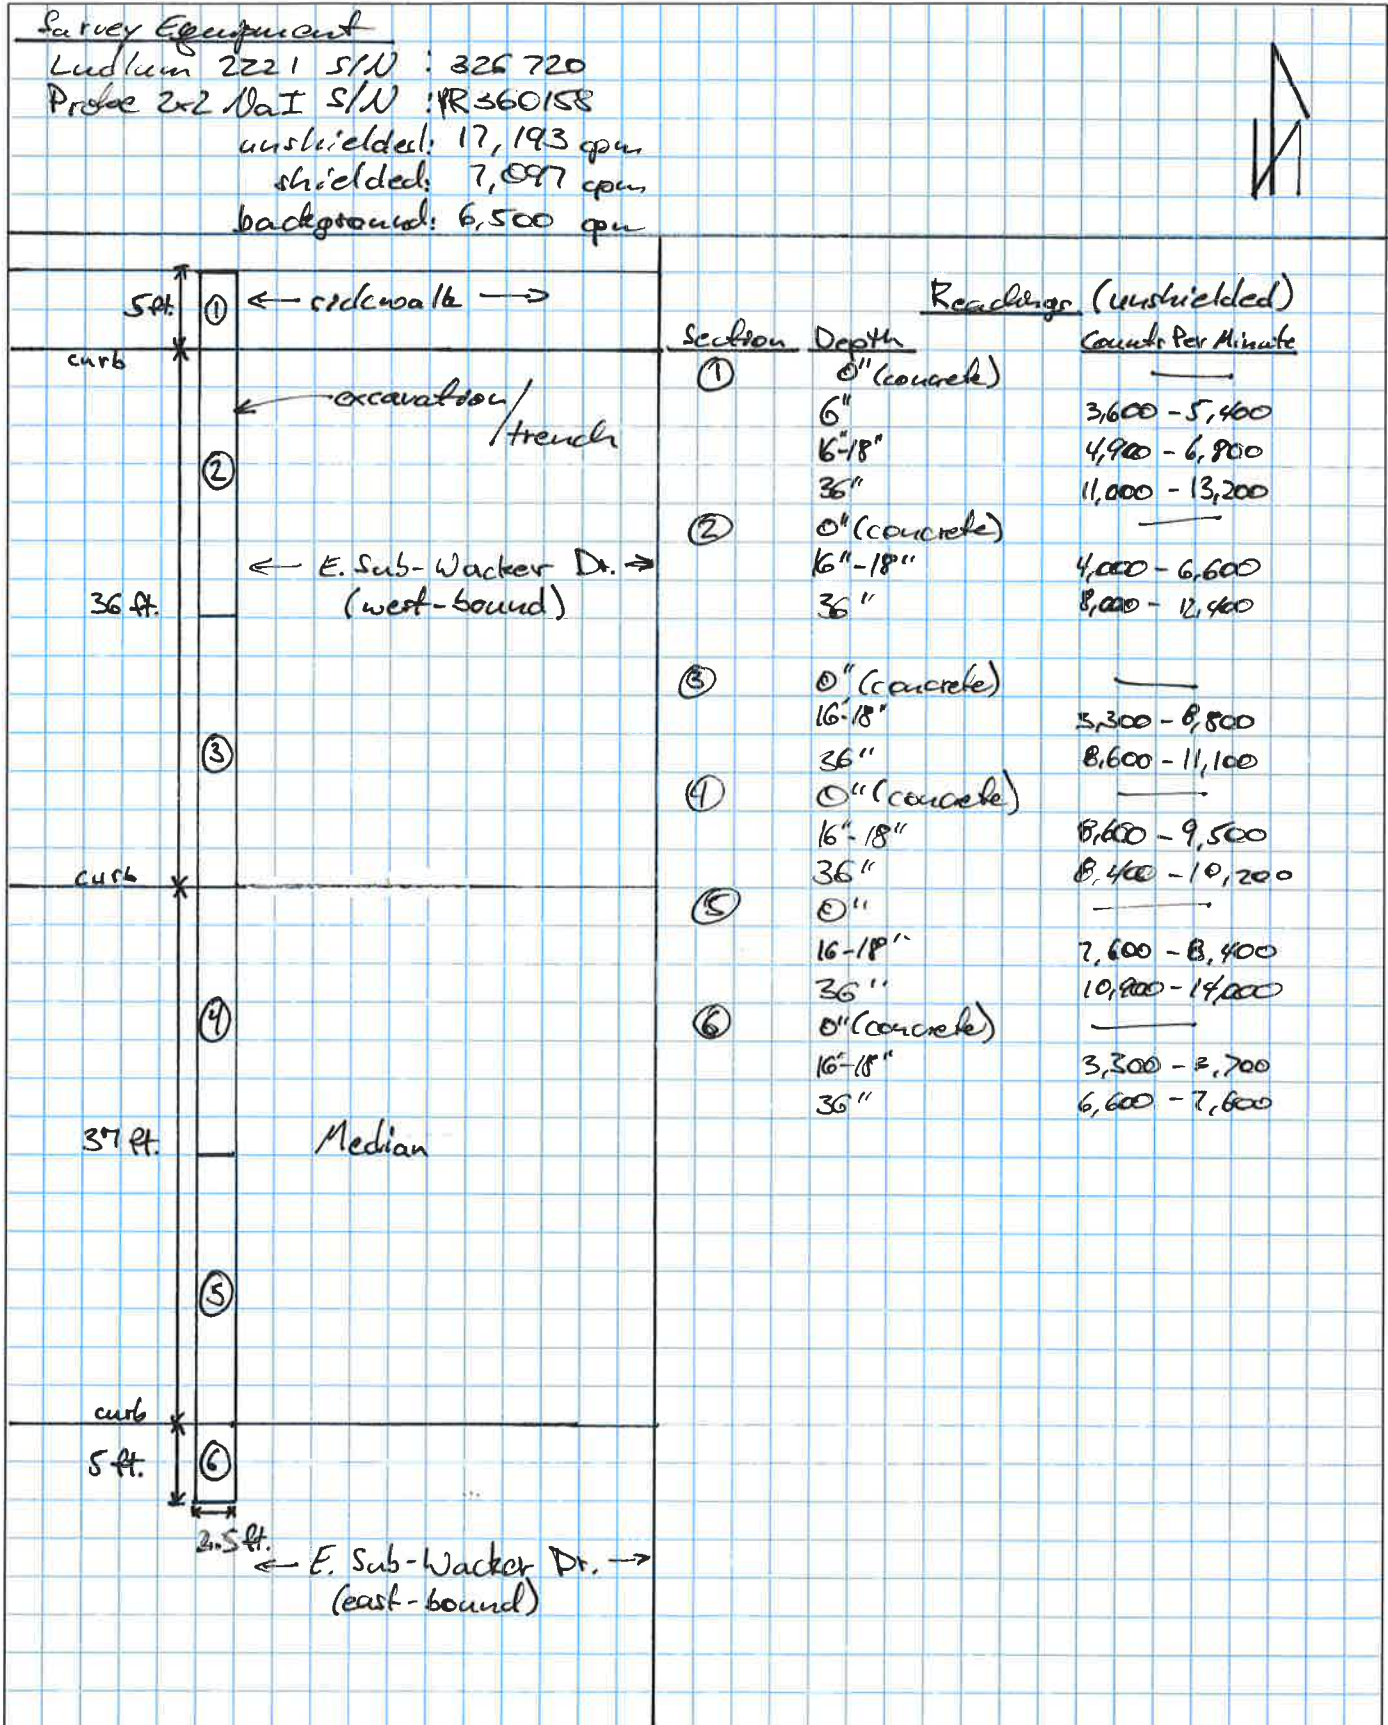 Survey Equipment
Ludlum 2221 S/N : 326720
Probe 2x2 NaI S/N : PR360158
unshielded: 17,193 cpm
shielded: 7,097 cpm
background: 6,500 cpm
N
5ft. ① ← sidewalk →
curb
excavation/trench
②
← E. Sub-Wacker Dr. →
(west-bound)
36 ft.
③
curb
④
37 ft. Median
⑤
curb
5 ft. ⑥
2.5 ft.
← E. Sub-Wacker Dr. →
(east-bound)
Readings (unshielded)
Section Depth Counts Per Minute
① 0" (concrete) —
6" 3,600 - 5,400
16"-18" 4,900 - 6,800
36" 11,000 - 13,200
② 0" (concrete) —
16"-18" 4,000 - 6,600
36" 8,000 - 12,400
③ 0" (concrete) —
16"-18" 5,300 - 6,800
36" 8,600 - 11,100
④ 0" (concrete) —
16"-18" 8,600 - 9,500
36" 8,400 - 10,200
⑤ 0" —
16-18" 7,600 - 8,400
36" 10,900 - 14,000
⑥ 0" (concrete) —
16"-18" 3,300 - 3,700
36" 6,600 - 7,600